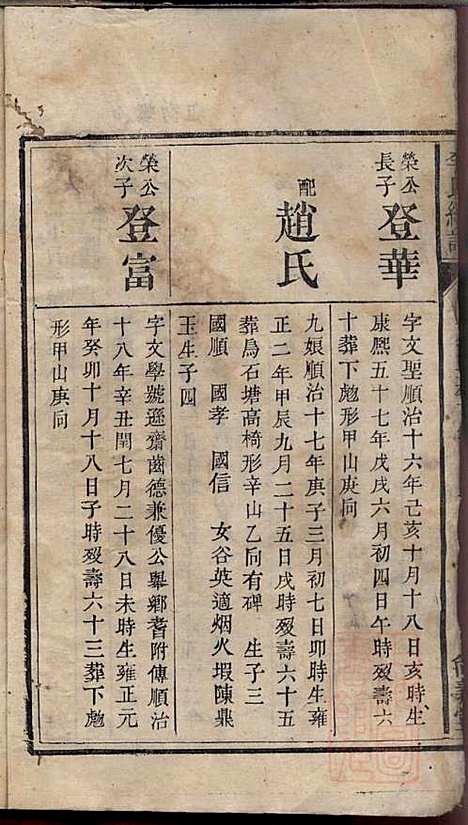 榮公長子
登華
字文聖順治十六年己亥十月十八日亥時生
康熙五十七年戊戌六月初四日午時歿壽六
十葬下趒形甲山庚向
配
趙氏
九娘順治十七年庚子三月初七日卯時生雍
正二年甲辰九月二十五日戌時歿壽六十五
葬鳥石塘高椅形辛山乙向有碑 生子三
國順 國孝 國信 女谷英適烟火塅陳鼎
玉生子四
榮公次子
登富
字文學號遜齋齒德兼優公舉鄉耆附傳順治
十八年辛丑閏七月二十八日未時生雍正元
年癸卯十月十八日子時歿壽六十三葬下趒
形甲山庚向